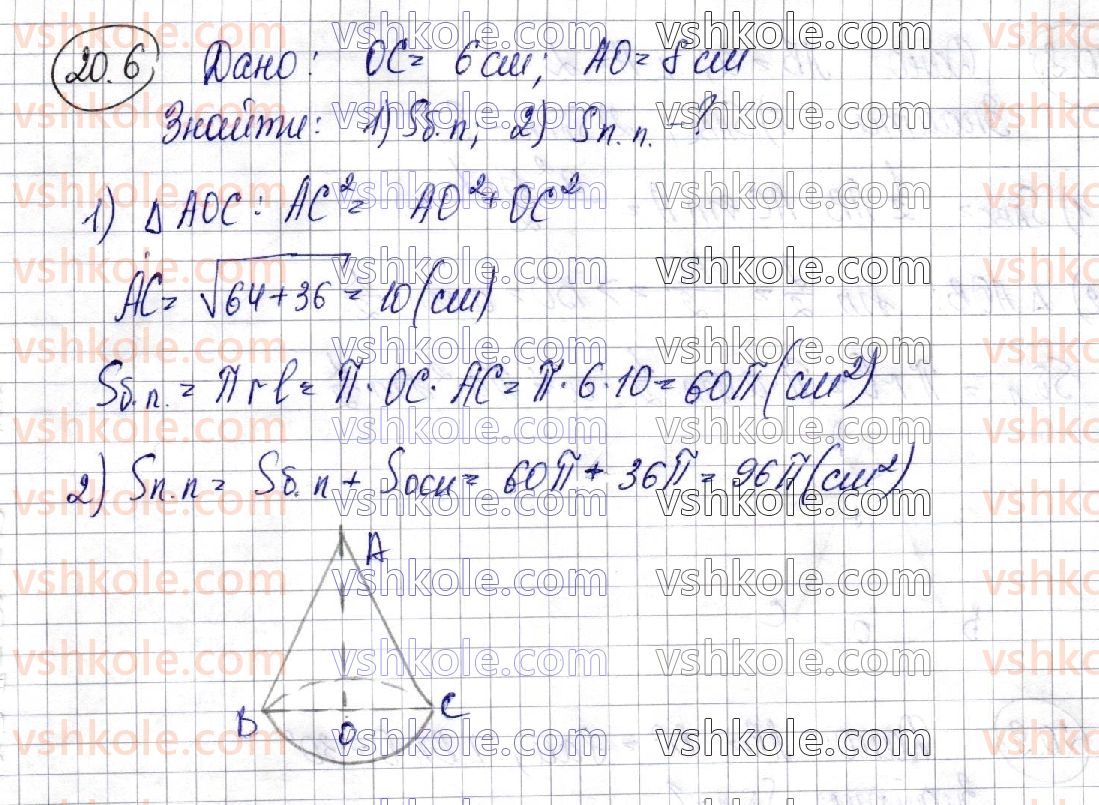 20.6 Дано: OC = 6 см; AO = 8 см
Знайти: 1) Sб.п; 2) Sп.п. - ?
1) △ AOC: AC² = AO² + OC²
AC = √64+36 = 10 (см)
Sб.п. = πrl = π · OC · AC = π · 6 · 10 = 60π (см²)
2) Sп.п = Sб.п + Sосн = 60π + 36π = 96π (см²)
A
B O C
vshkole.com